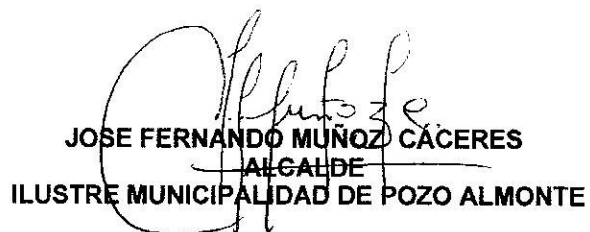 JOSE FERNANDO MUÑOZ CÁCERES
ALCALDE
ILUSTRE MUNICIPALIDAD DE POZO ALMONTE